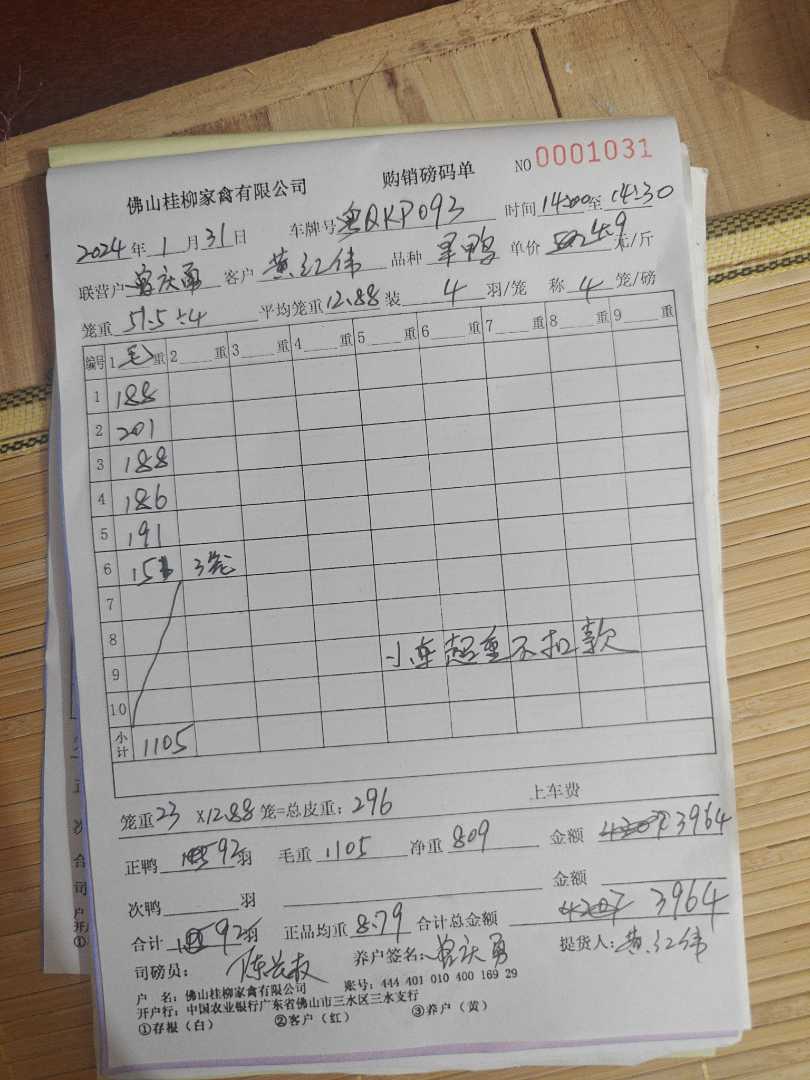 佛山桂柳家禽有限公司 购销磅码单 NO 0001031
2024年 1 月 31 日 车牌号 粤QKP093 时间 14:00 至 14:30
联营户 曾庆勇 客户 黄红伟 品种 单价 4.9 元/斤
笼重 51.5÷4 平均笼重 12.88 装 4 羽/笼 称 4 笼/磅
编号 1 毛 重 2 重 3 重 4 重 5 重 6 重 7 重 8 重 9 重
1 188
2 201
3 188
4 186
5 191
6 151 3笼
7
8
小车超重不扣款
9
10
小计 1105
笼重 23 ×12.88 笼=总皮重: 296 上车费
正鸭 92 羽 毛重 1105 净重 809 金额 4207 3964
次鸭 羽 金额
合计 92 羽 正品均重 8.79 合计总金额 4207 3964
司磅员: 养户签名: 曾庆勇 提货人: 黄红伟
户 名: 佛山桂柳家禽有限公司 账号: 444 401 010 400 169 29
开户行: 中国农业银行广东省佛山市三水区三水支行
①存根(白) ②客户(红) ③养户(黄)